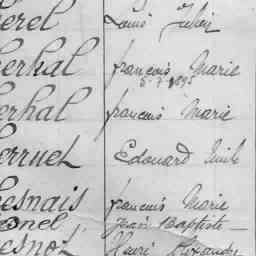 erel Louis Julien
erhal françois Marie
5-7-1895
erhal françois Marie
erruet Edouard Emile
esnais françois Marie
onel Jean Baptiste —
esnot Henri Alexandre